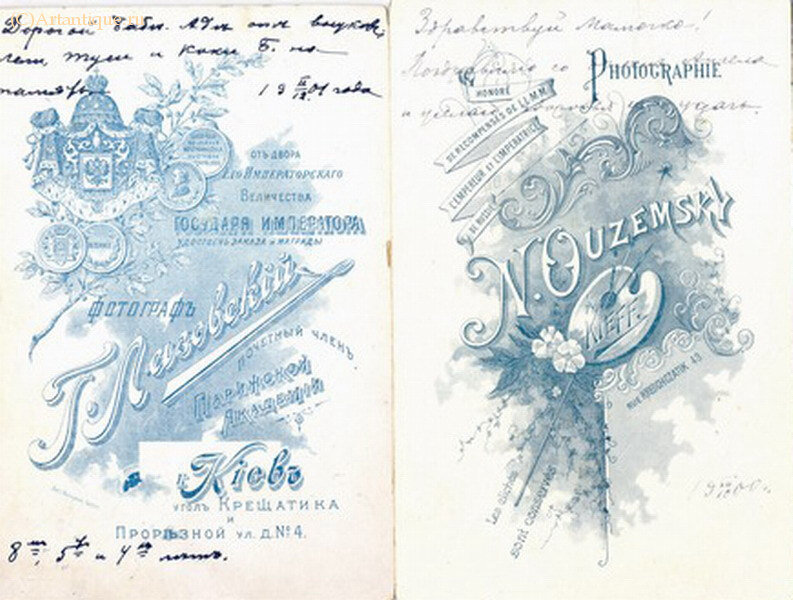 (C)Artantique.ru
Дорогой бабъ. Адѣ отъ внуковъ
и Коки Б. на
память
19 01 года
ОТЪ ДВОРА
ЕГО ИМПЕРАТОРСКАГО
ВЕЛИЧЕСТВА
ГОСУДАРЯ ИМПЕРАТОРА
УДОСТОЕНЪ ЗАКАЗА И НАГРАДЫ
ФОТОГРАФЪ
Г. Лазовскій
ПОЧЕТНЫЙ ЧЛЕНЪ
ПАРИЖСКОЙ
АКАДЕМІИ
Г. КІЕВЪ
УГОЛЪ КРЕЩАТИКА
И
ПРОРѢЗНОЙ УЛ. Д. № 4.
8, 5 и 4 лѣтъ.
Здравствуй Мамочка!
Поздравляю со Ангела
и
PHOTOGRAPHIE
HONORÉ
DE RECOMPENSES DE LL.M.M.
L'EMPEREUR ET L'IMPERATRICE
DE RUSSIE
N. OUZEMSKY
KIEFF.
RUE KRECHTATIK 43
Les clichés
SONT CONSERVÉS
1900 г.